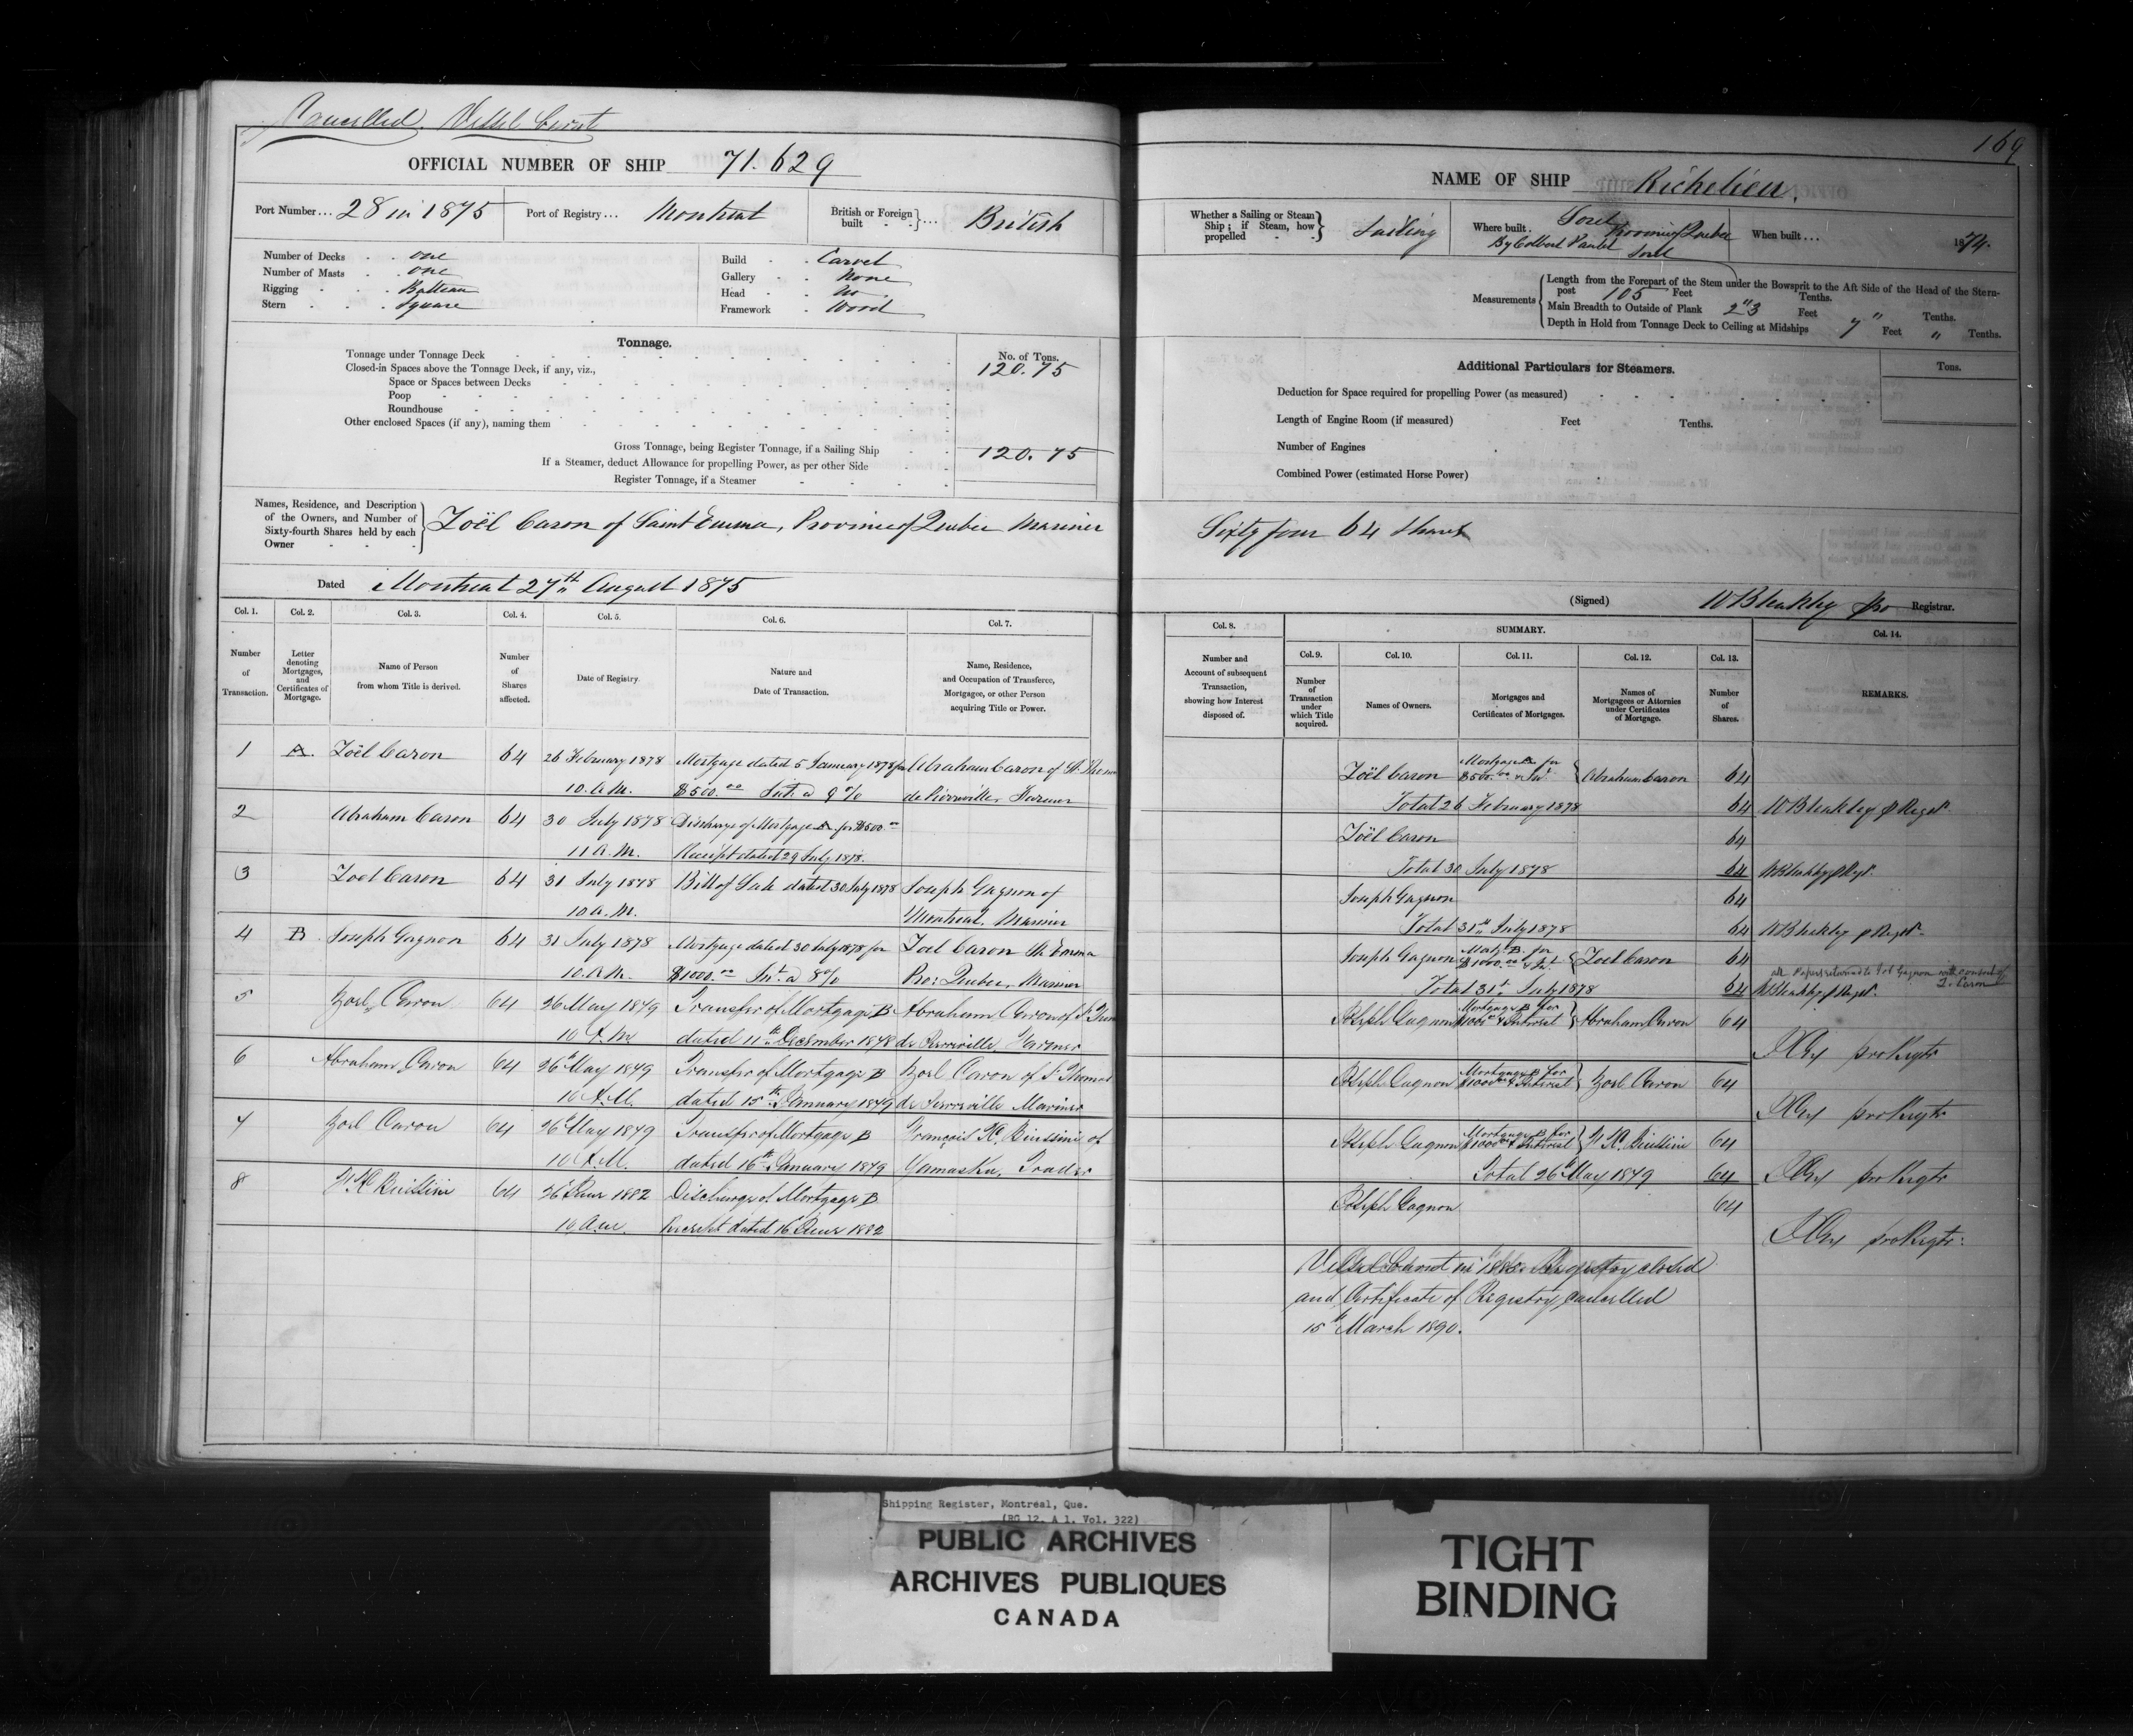 Cancelled. Vessel burnt
OFFICIAL NUMBER OF SHIP 71.629
Port Number... 28 in 1875 Port of Registry... Montreal British or Foreign built British
Number of Decks one
Number of Masts one
Rigging Batteau
Stern Square
Build Carvel
Gallery None
Head No
Framework Wood
Tonnage.
No. of Tons.
Tonnage under Tonnage Deck 120.75
Closed-in Spaces above the Tonnage Deck, if any, viz.,
Space or Spaces between Decks
Poop
Roundhouse
Other enclosed Spaces (if any), naming them
Gross Tonnage, being Register Tonnage, if a Sailing Ship 120.75
If a Steamer, deduct Allowance for propelling Power, as per other Side
Register Tonnage, if a Steamer
Names, Residence, and Description
of the Owners, and Number of
Sixty-fourth Shares held by each
Owner
Zoël Caron of Saint Emma, Province of Quebec Mariner
Dated Montreal 27th August 1875
Col. 1. Col. 2. Col. 3. Col. 4. Col. 5. Col. 6. Col. 7.
Number of Transaction.
Letter denoting Mortgages, and Certificates of Mortgage.
Name of Person from whom Title is derived.
Number of Shares affected.
Date of Registry.
Nature and Date of Transaction.
Name, Residence, and Occupation of Transferee, Mortgagee, or other Person acquiring Title or Power.
1 A. Zoël Caron 64 26 February 1878 Mortgage dated 5 January 1878 for Abraham Caron of St. Thomas
10. A.M. $500.00 Int. @ 9% de Pierreville, Farmer
2 Abraham Caron 64 30 July 1878 Discharge of Mortgage A. for $500.00
11 A.M. Receipt dated 29 July 1878.
3 Zoel Caron 64 31 July 1878 Bill of Sale dated 30 July 1878 Joseph Gagnon of
10 A.M. Montreal. Mariner
4 B. Joseph Gagnon 64 31 July 1878 Mortgage dated 30 July 1878 for Zoel Caron St. Emma
10. A.M. $1000.00 Int. @ 8% Pro: Quebec, Mariner
5 Zoel Caron 64 26 May 1879 Transfer of Mortgage B Abraham Caron of St
10 A.M. dated 11th December 1878 de Pierreville, Farmer
6 Abraham Caron 64 26 May 1879 Transfer of Mortgage B Zoel Caron of St Thomas
10 A.M. dated 15th January 1879 de Pierreville Mariner
7 Zoel Caron 64 26 May 1879 Transfer of Mortgage B François of
10 A.M. dated 16th January 1879 Yamaska, Trader
8 64 26 1882 Discharge of Mortgage B
10 a.m. Receipt dated 16 1882
169
NAME OF SHIP Richelieu.
Whether a Sailing or Steam Ship; if Steam, how propelled Sailing
Where built. Sorel Province of Quebec
By Colbert Sorel
When built... 1874.
Measurements
Length from the Forepart of the Stem under the Bowsprit to the Aft Side of the Head of the Stern-
post 105 Feet Tenths.
Main Breadth to Outside of Plank 23 Feet " Tenths.
Depth in Hold from Tonnage Deck to Ceiling at Midships 7 Feet " Tenths.
Additional Particulars for Steamers.
Tons.
Deduction for Space required for propelling Power (as measured)
Length of Engine Room (if measured) Feet Tenths.
Number of Engines
Combined Power (estimated Horse Power)
Sixty four 64 Shares
(Signed) W Bleakley pro Registrar.
Col. 8. SUMMARY. Col. 14.
Col. 9. Col. 10. Col. 11. Col. 12. Col. 13.
Number and Account of subsequent Transaction, showing how Interest disposed of.
Number of Transaction under which Title acquired.
Names of Owners.
Mortgages and Certificates of Mortgages.
Names of Mortgagees or Attornies under Certificates of Mortgage.
Number of Shares.
REMARKS.
Zoël Caron Mortgage A for $500.00 & Int Abraham Caron 64
Total 26 February 1878 64 W Bleakley p Regr.
Zoël Caron 64
Total 30 July 1878 64 W Bleakley p Regr.
Joseph Gagnon 64
Total 31st July 1878 64 W Bleakley p Regr.
Joseph Gagnon Mortg. B. for $1000.00 & Int. Zoel Caron 64
all Papers returned to Jos Gagnon with consent of Z. Caron
Total 31st July 1878 64 W Bleakley p Regr.
Joseph Gagnon Mortgage B for $1000 & Interest Abraham Caron 64
pro Regtr
Joseph Gagnon Mortgage B for $1000 & Interest Zoel Caron 64
pro Regtr
Joseph Gagnon Mortgage B for $1000 & Interest 64
Total 26 May 1879 64 pro Regtr
Joseph Gagnon 64
pro Regtr:
Vessel burnt in Registry closed
and Certificate of Registry cancelled
15th March 1890.
Shipping Register, Montreal, Que.
(RG 12, A 1, Vol. 322)
PUBLIC ARCHIVES
ARCHIVES PUBLIQUES
CANADA
TIGHT
BINDING